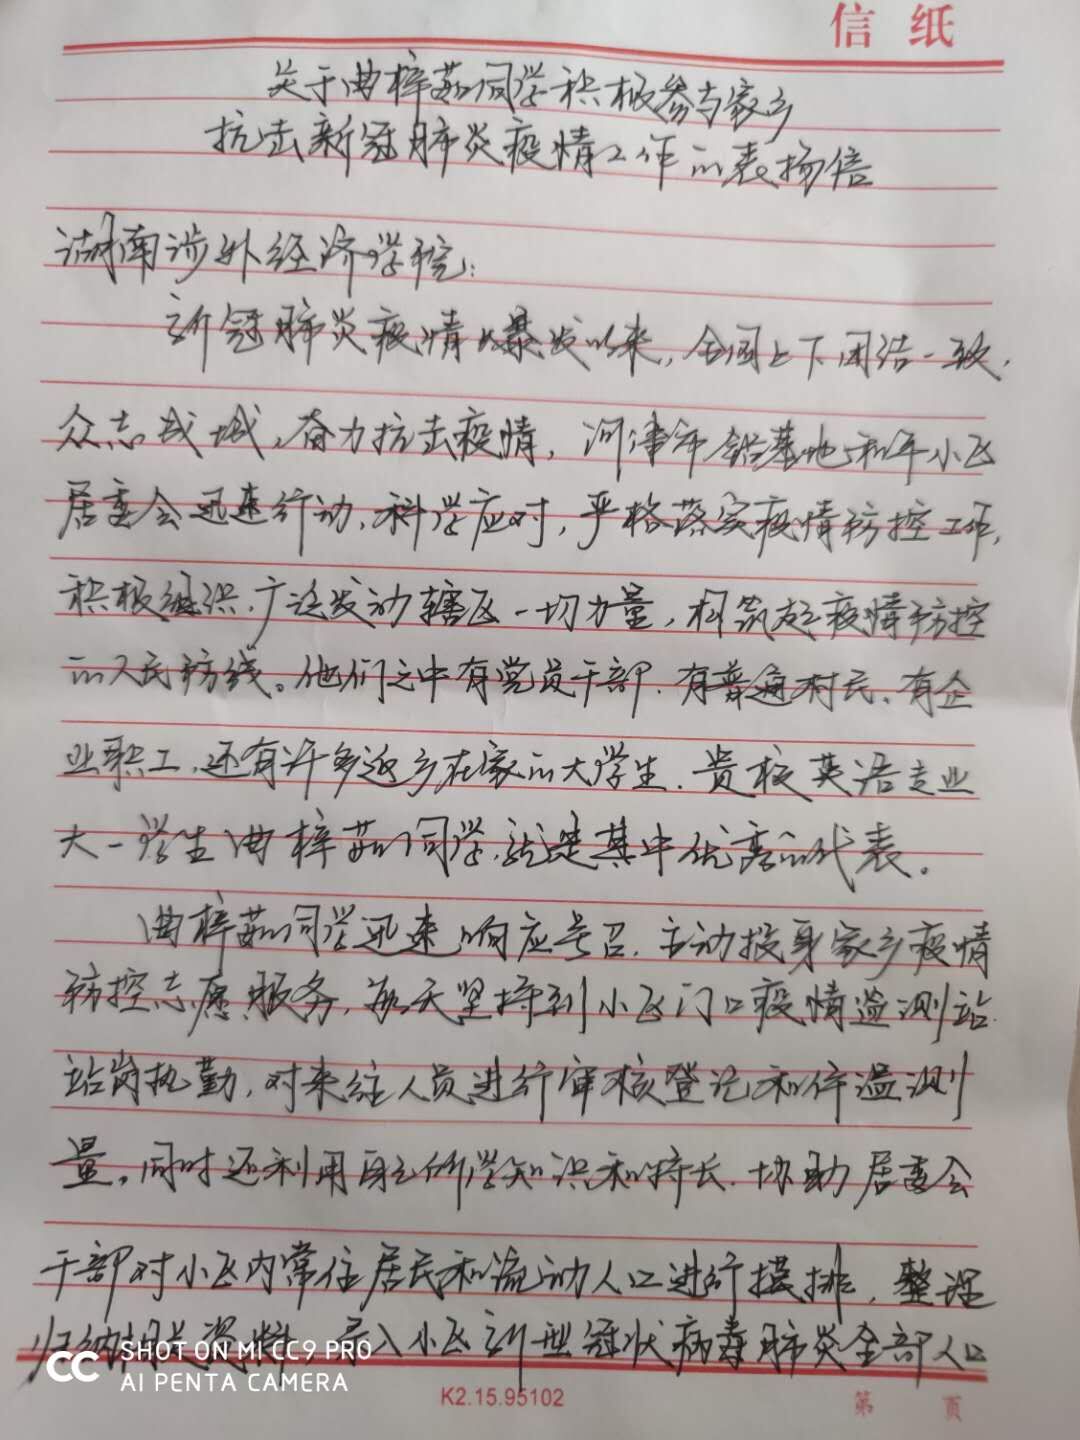 信纸
关于曲梓茹同学积极参与家乡
抗击新冠肺炎疫情工作的表扬信
湖南涉外经济学院：
新冠肺炎疫情爆发以来，全国上下团结一致，
众志成城，奋力抗击疫情，河津市铝基地和平小区
居委会迅速行动，科学应对，严格落实疫情防控工作，
积极组织，广泛发动辖区一切力量，构筑起疫情防控
的人民防线。他们之中有党员干部、有普通村民、有企
业职工，还有许多返乡在家的大学生，贵校英语专业
大一学生曲梓茹同学，就是其中优秀的代表。
曲梓茹同学迅速响应号召，主动投身家乡疫情
防控志愿服务，每天坚持到小区门口疫情监测站
站岗执勤，对来往人员进行审核登记和体温测
量。同时还利用自己所学知识和特长，协助居委会
干部对小区内常住居民和流动人口进行摸排，整理
归纳相关资料，录入小区新型冠状病毒肺炎全部人口
SHOT ON MI CC9 PRO
AI PENTA CAMERA
K2.15.95102
第 页